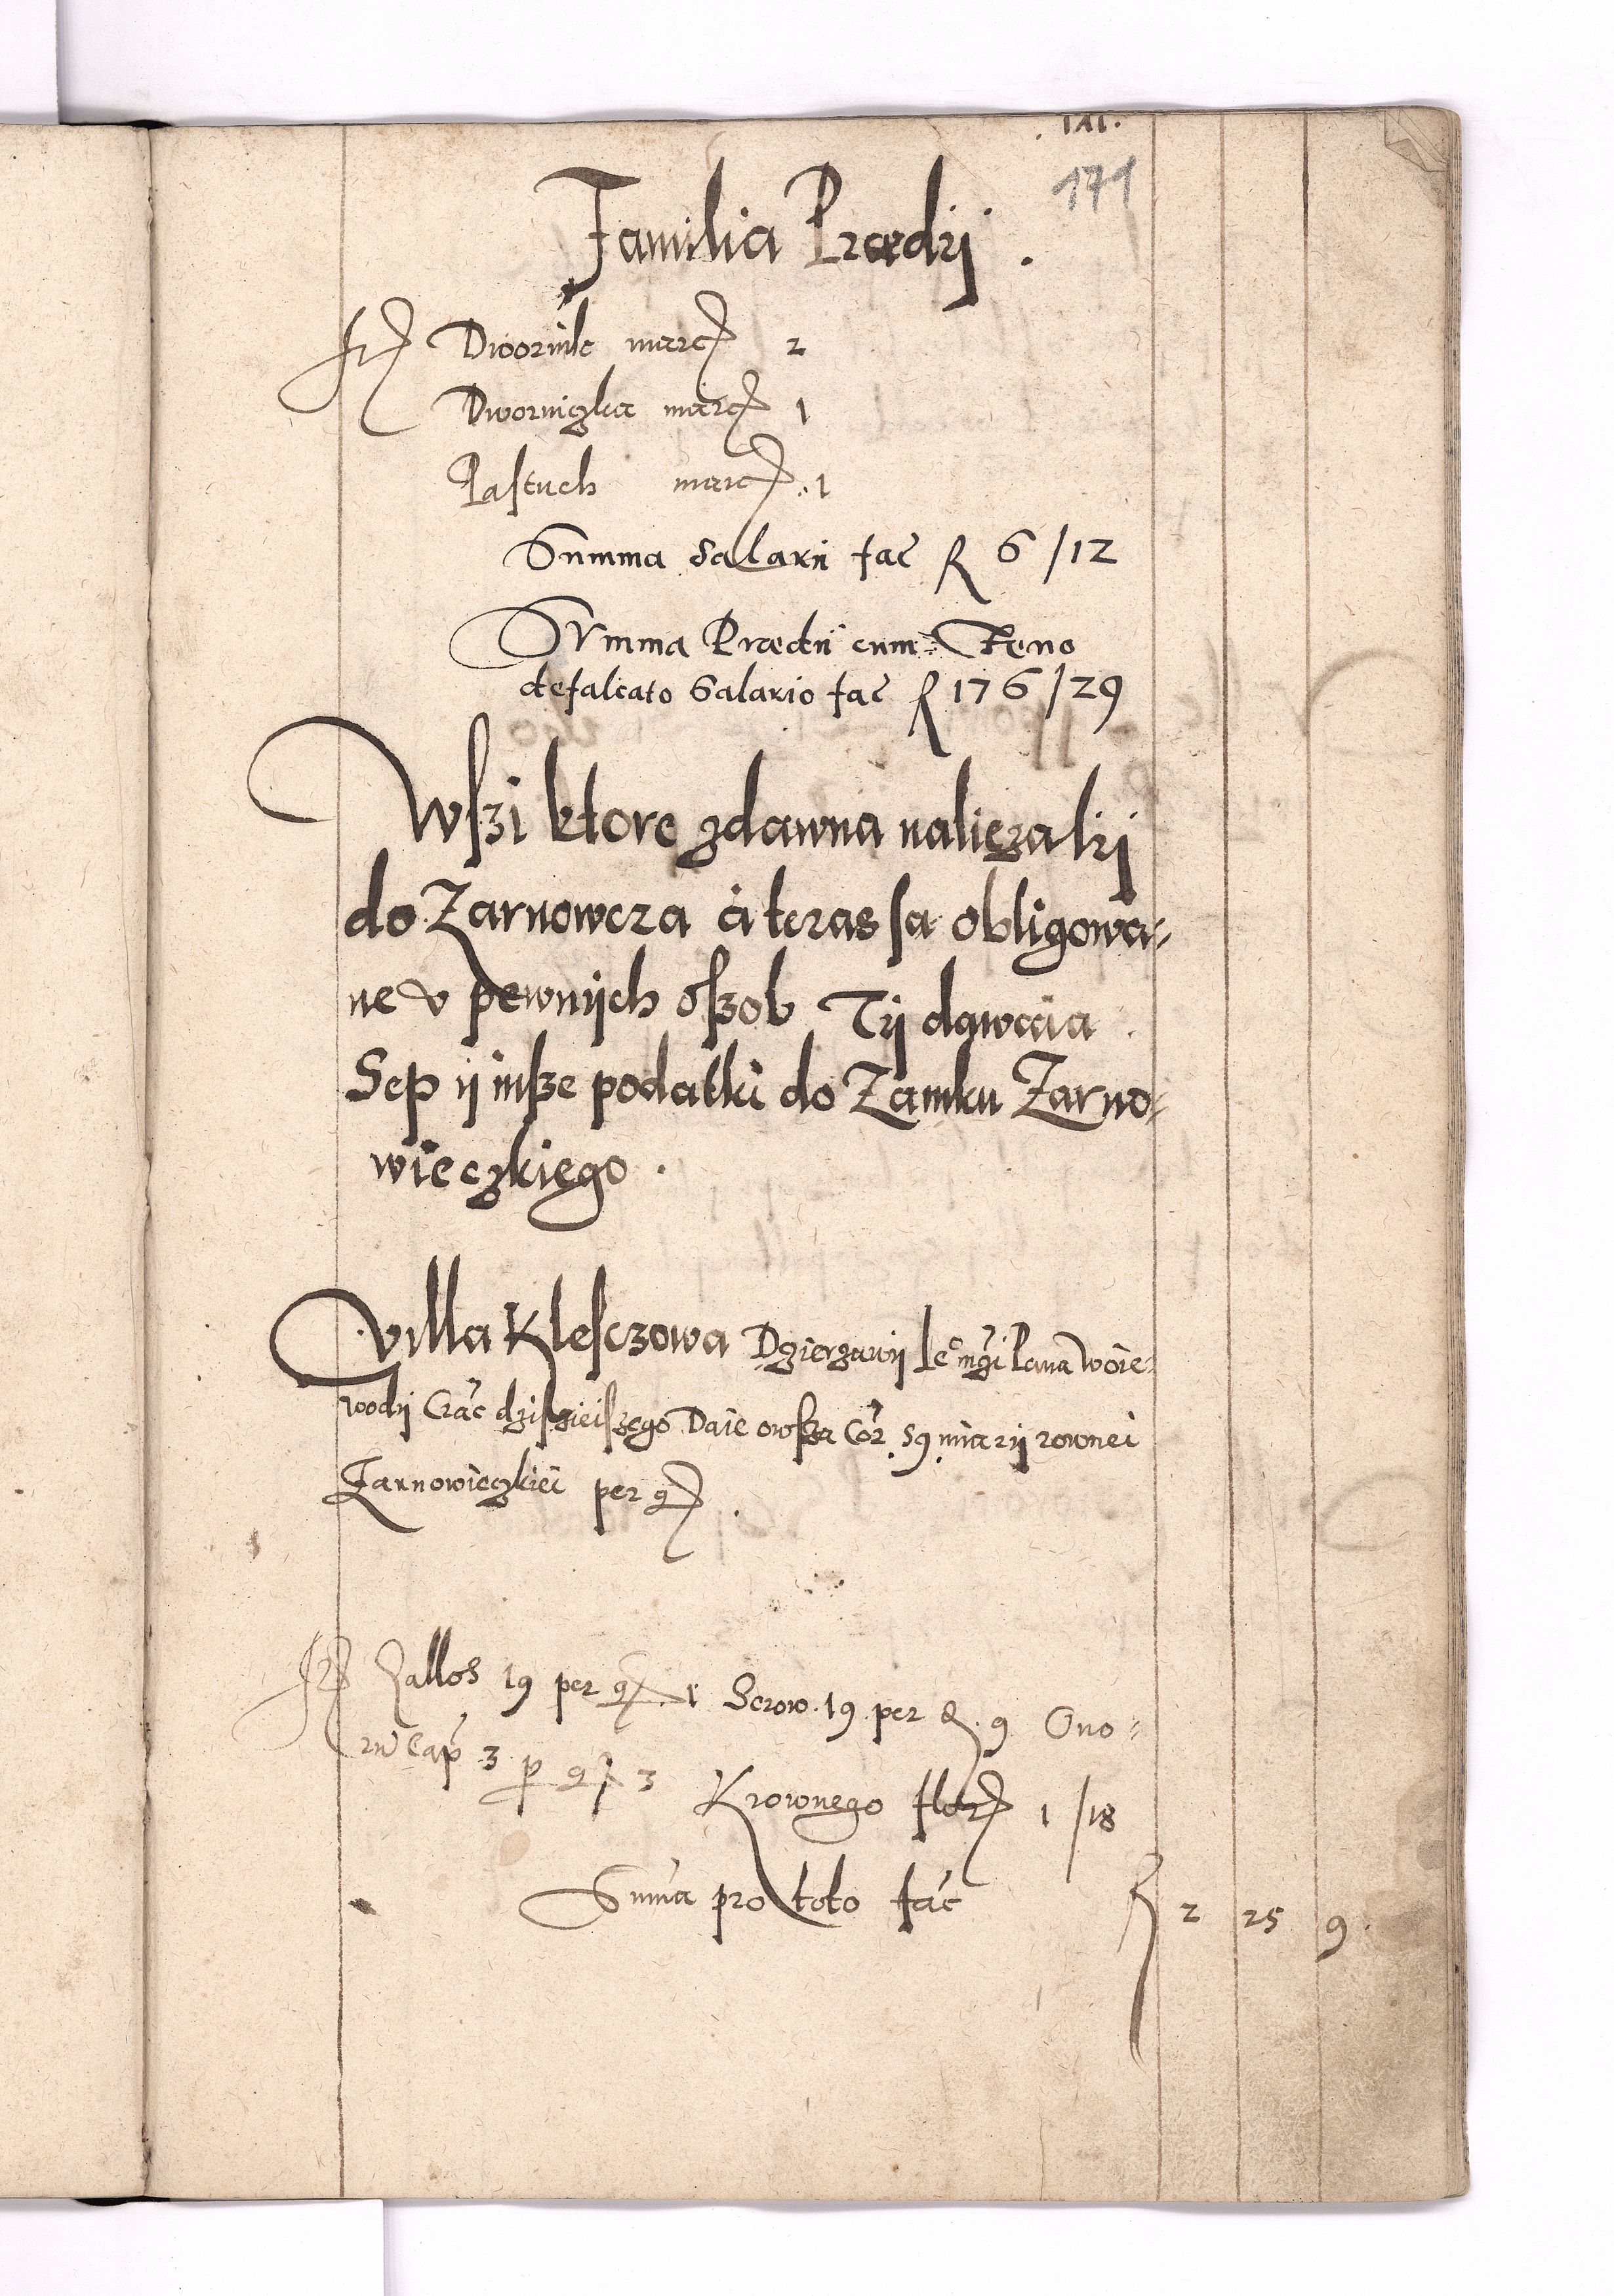 171
Familia Prædij .
Dwornik marc 2
Dworniczka marc 1
Pastuch marc 1
Summa Salarii fac R 6 /12
Summa Prædii cum Feno
defalcato Salario fac R 176 /29
Wſzi ktore zdawna nalięzalij
do Zarnowcza á teras ſa obligowa=
ne v pewnijch oſzob Tij dawaia
Sep ij inſze podatki do Zamku Zarno=
wieczkiego .
Villa Kleſczowa Dzierzawij Je° mģi Pana Woie=
wodij Crac dziſzieiſzego Daie owſza Cor 59 miarij rownei
Zarnowieczkiei per g .
Gallos 19 per g 1 Serow 19 per 9 Ouo=
rū cap 3 p g 3 Krownego flor 1 /18
Summa pro toto fac R 2 25 9 .